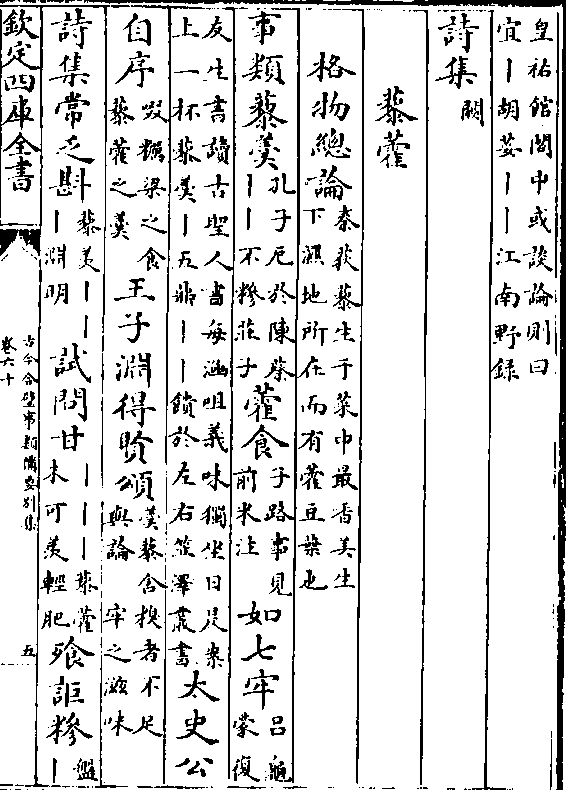 皇祐館閣中或談論則曰
宜丨胡荽丨丨江南野錄
詩集闕
藜藿
格物總論秦荻藜生于菜中最香美生
下濕地所在而有藿豆葉也
事類藜羮孔子厄於陳蔡
丨丨不糝莊子藿食子路事見
前米注如七牢呂廵
蒙復
友生書讀古聖人書每涵咀義味獨坐日昃案
上一杯藜羮丨五鼎丨丨饋於左右笠澤叢書太史公
自序啜糲粱之食
藜藿之羮王子淵得賢頌羮藜含糗者不足
與論 牢之滋味
詩集常乏斟藜羮丨丨
丨淵明試問甘丨丨丨藜藿
未可羨輕肥飱詎糝盤
丨
欽定四庫全書
古今合璧事類備要别集
卷六十
五